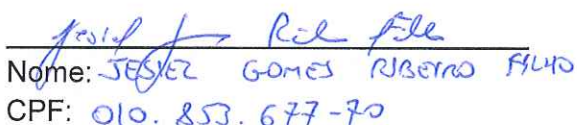 Nome: JESIEL GOMES RIBEIRO FILHO
CPF: 010.853.677-70